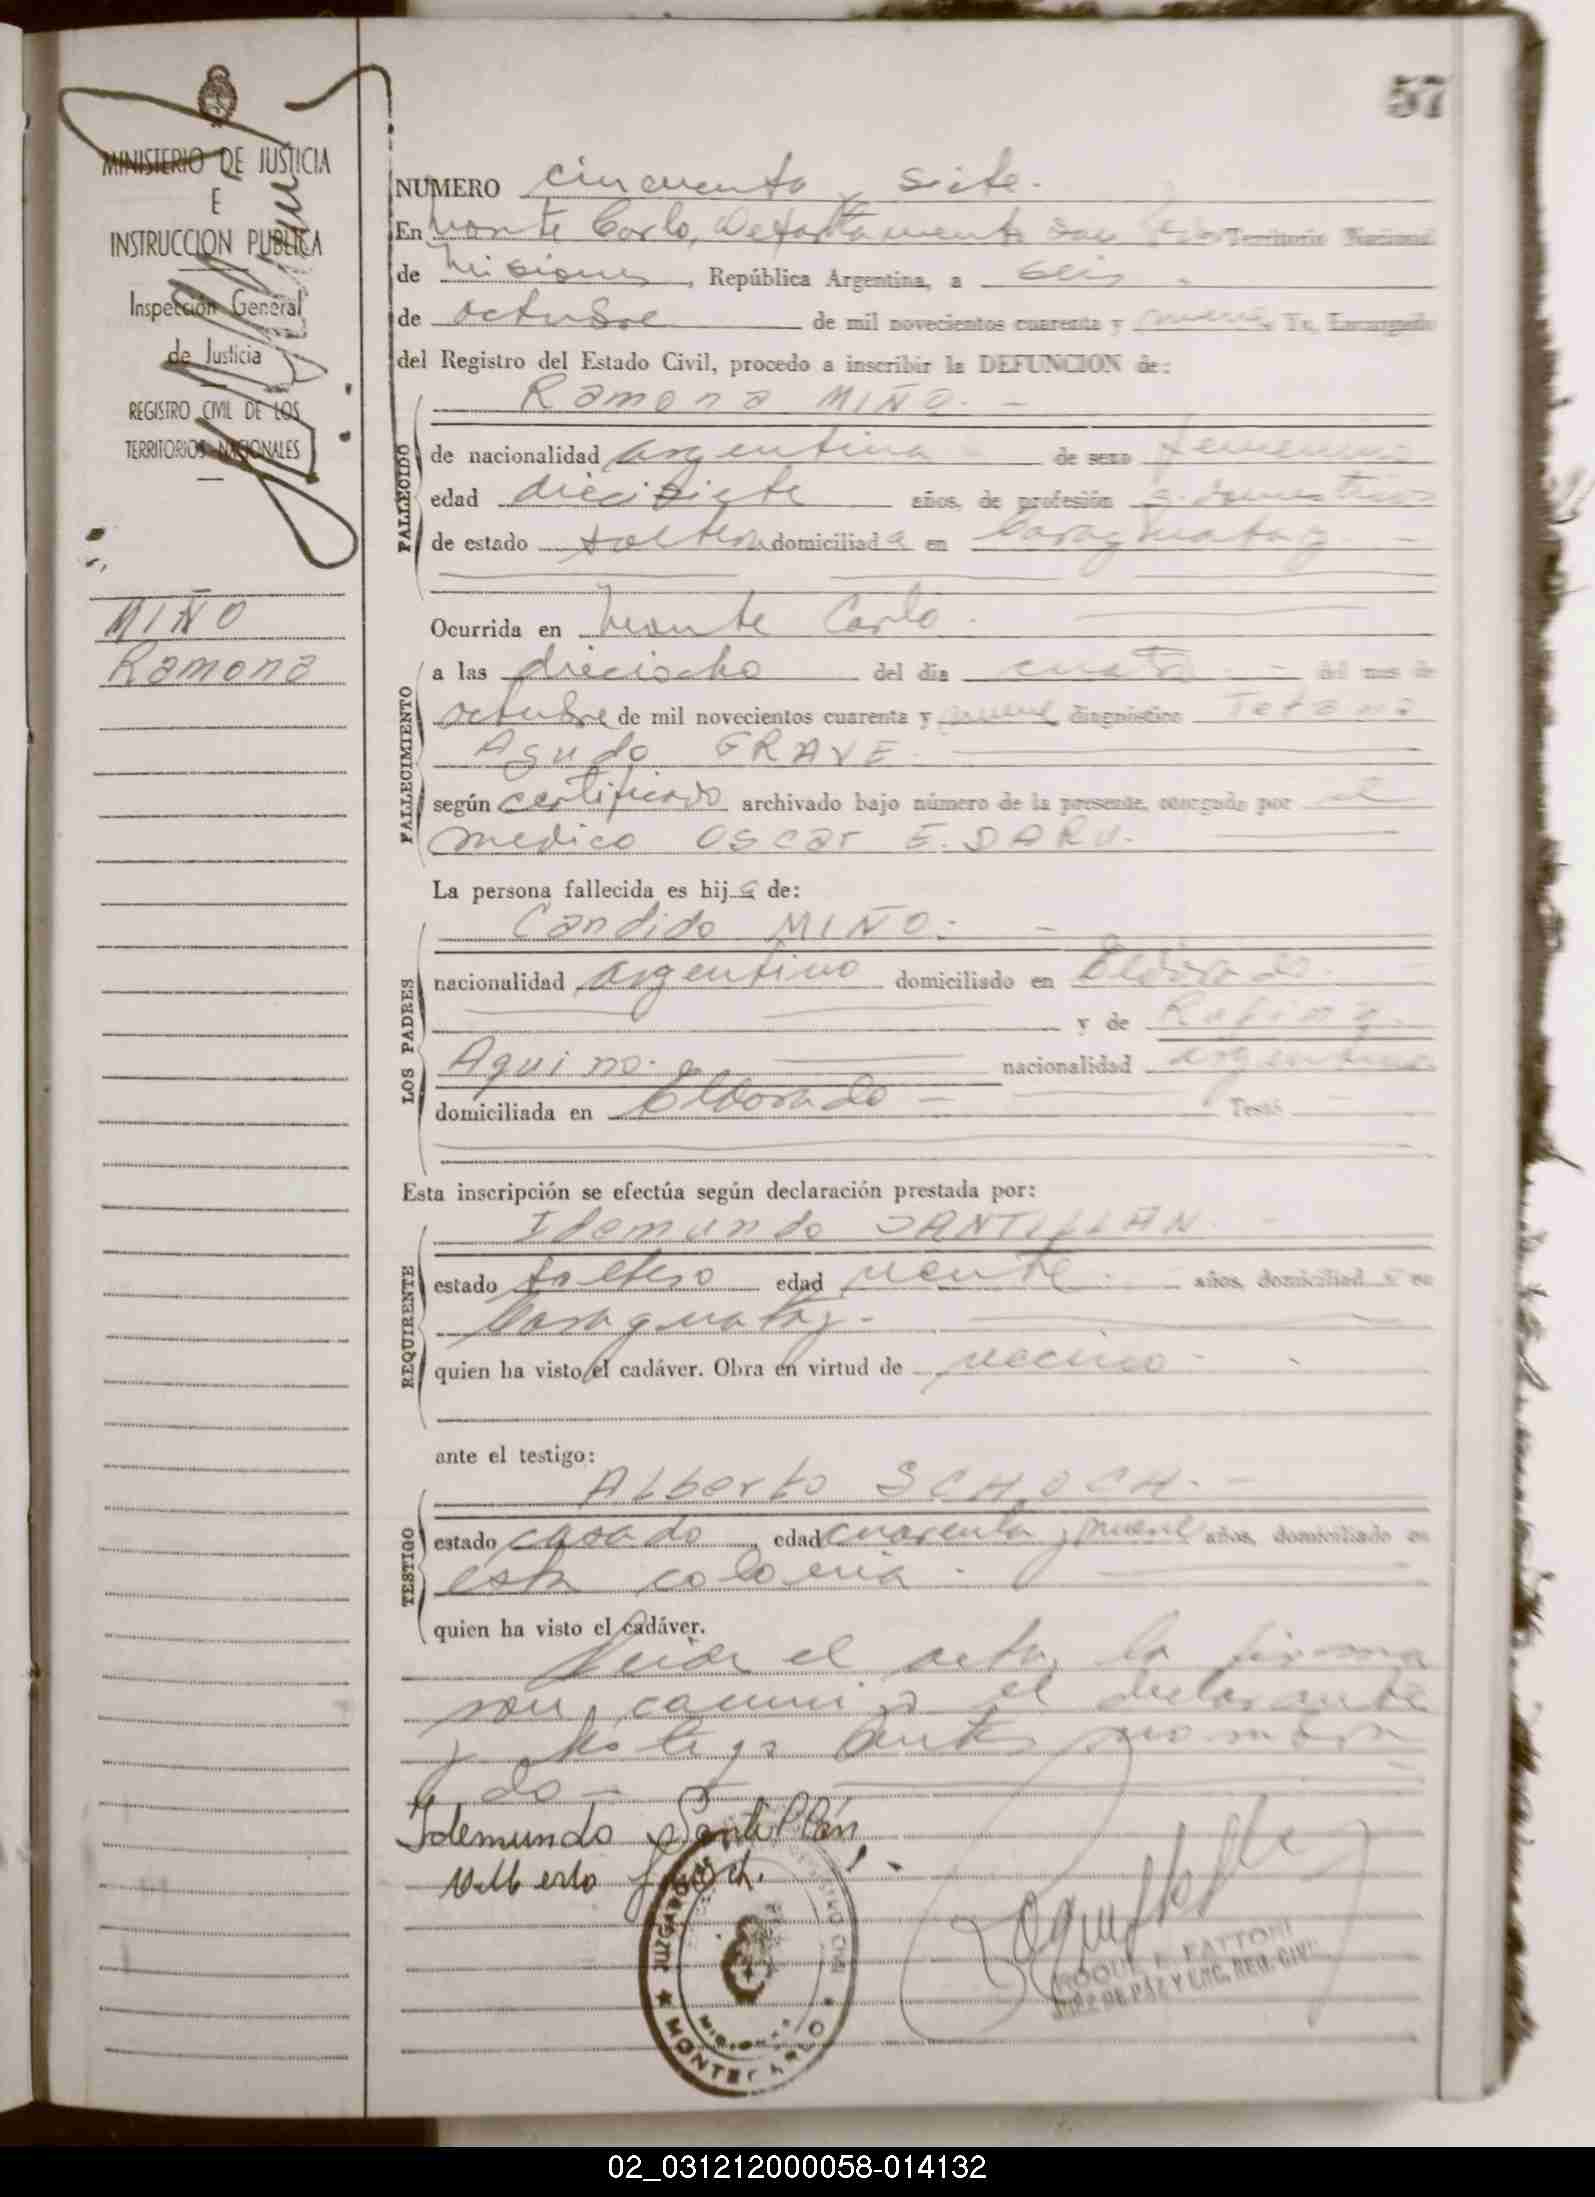 57
MINISTERIO DE JUSTICIA
E
INSTRUCCION PUBLICA
Inspección General
de Justicia
REGISTRO CIVIL DE LOS
TERRITORIOS NACIONALES
MIÑO
Ramona
NUMERO cincuenta y siete.
En Monte Carlo, Departamento San Territorio Nacional
de Misiones, República Argentina, a seis
de octubre de mil novecientos cuarenta y nueve. Yo, Encargado
del Registro del Estado Civil, procedo a inscribir la DEFUNCION de:
FALLECIDO
Ramona MIÑO. -
de nacionalidad argentina de sexo femenino
edad diecisiete años, de profesión q. domesticos
de estado soltera domiciliada en Caraguatay. -
Ocurrida en Monte Carlo.
FALLECIMIENTO
a las dieciocho del día cuatro - del mes de
octubre de mil novecientos cuarenta y nueve diagnóstico Tetano
Agudo GRAVE.
según certificado archivado bajo número de la presente, otorgado por el
medico Oscar E. DARU.
La persona fallecida es hija de:
LOS PADRES
Candido MIÑO. -
nacionalidad argentino domiciliado en Eldorado.
y de Rufina
Aquino. nacionalidad argentina
domiciliada en Eldorado - Testó
Esta inscripción se efectúa según declaración prestada por:
REQUIRENTE
Idemundo SANTILLAN. -
estado soltero edad veinte. años, domiciliado en
Caraguatay. -
quien ha visto el cadáver. Obra en virtud de vecino -
ante el testigo:
TESTIGO
Alberto SCHOCH. -
estado casado, edad cuarenta y nueve años, domiciliado en
esta colonia.
quien ha visto el cadáver.
Leida el acta, la firman
con el declarante
y testigo antes nombra
do -
Idemundo Santillán
Alberto Schoch.
JUZGADO REGISTRO CIVIL
MISIONES
★ MONTECARLO ★
ROQUE FATTORI
JUEZ DE PAZ Y ENC. REG. CIVIL
02_031212000058-014132